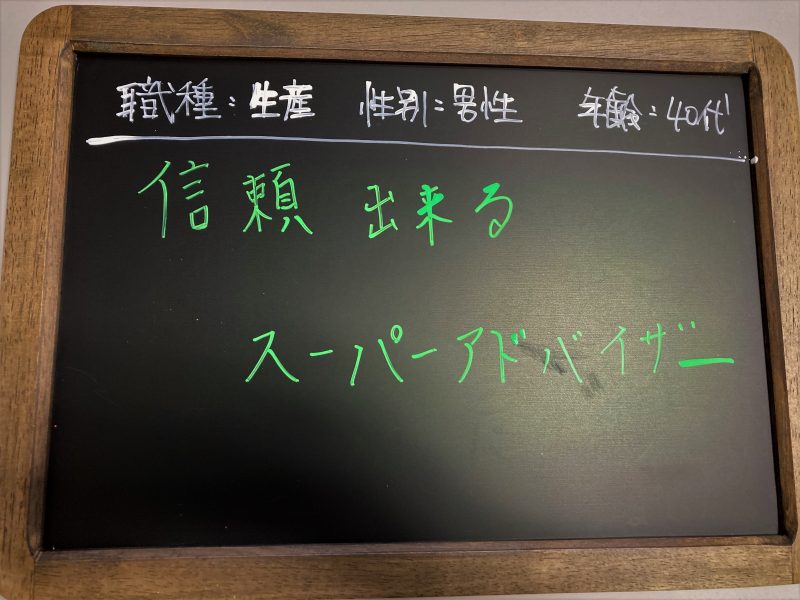 職種：生産　性別：男性　年齢：40代
信頼 出来る
スーパーアドバイザー